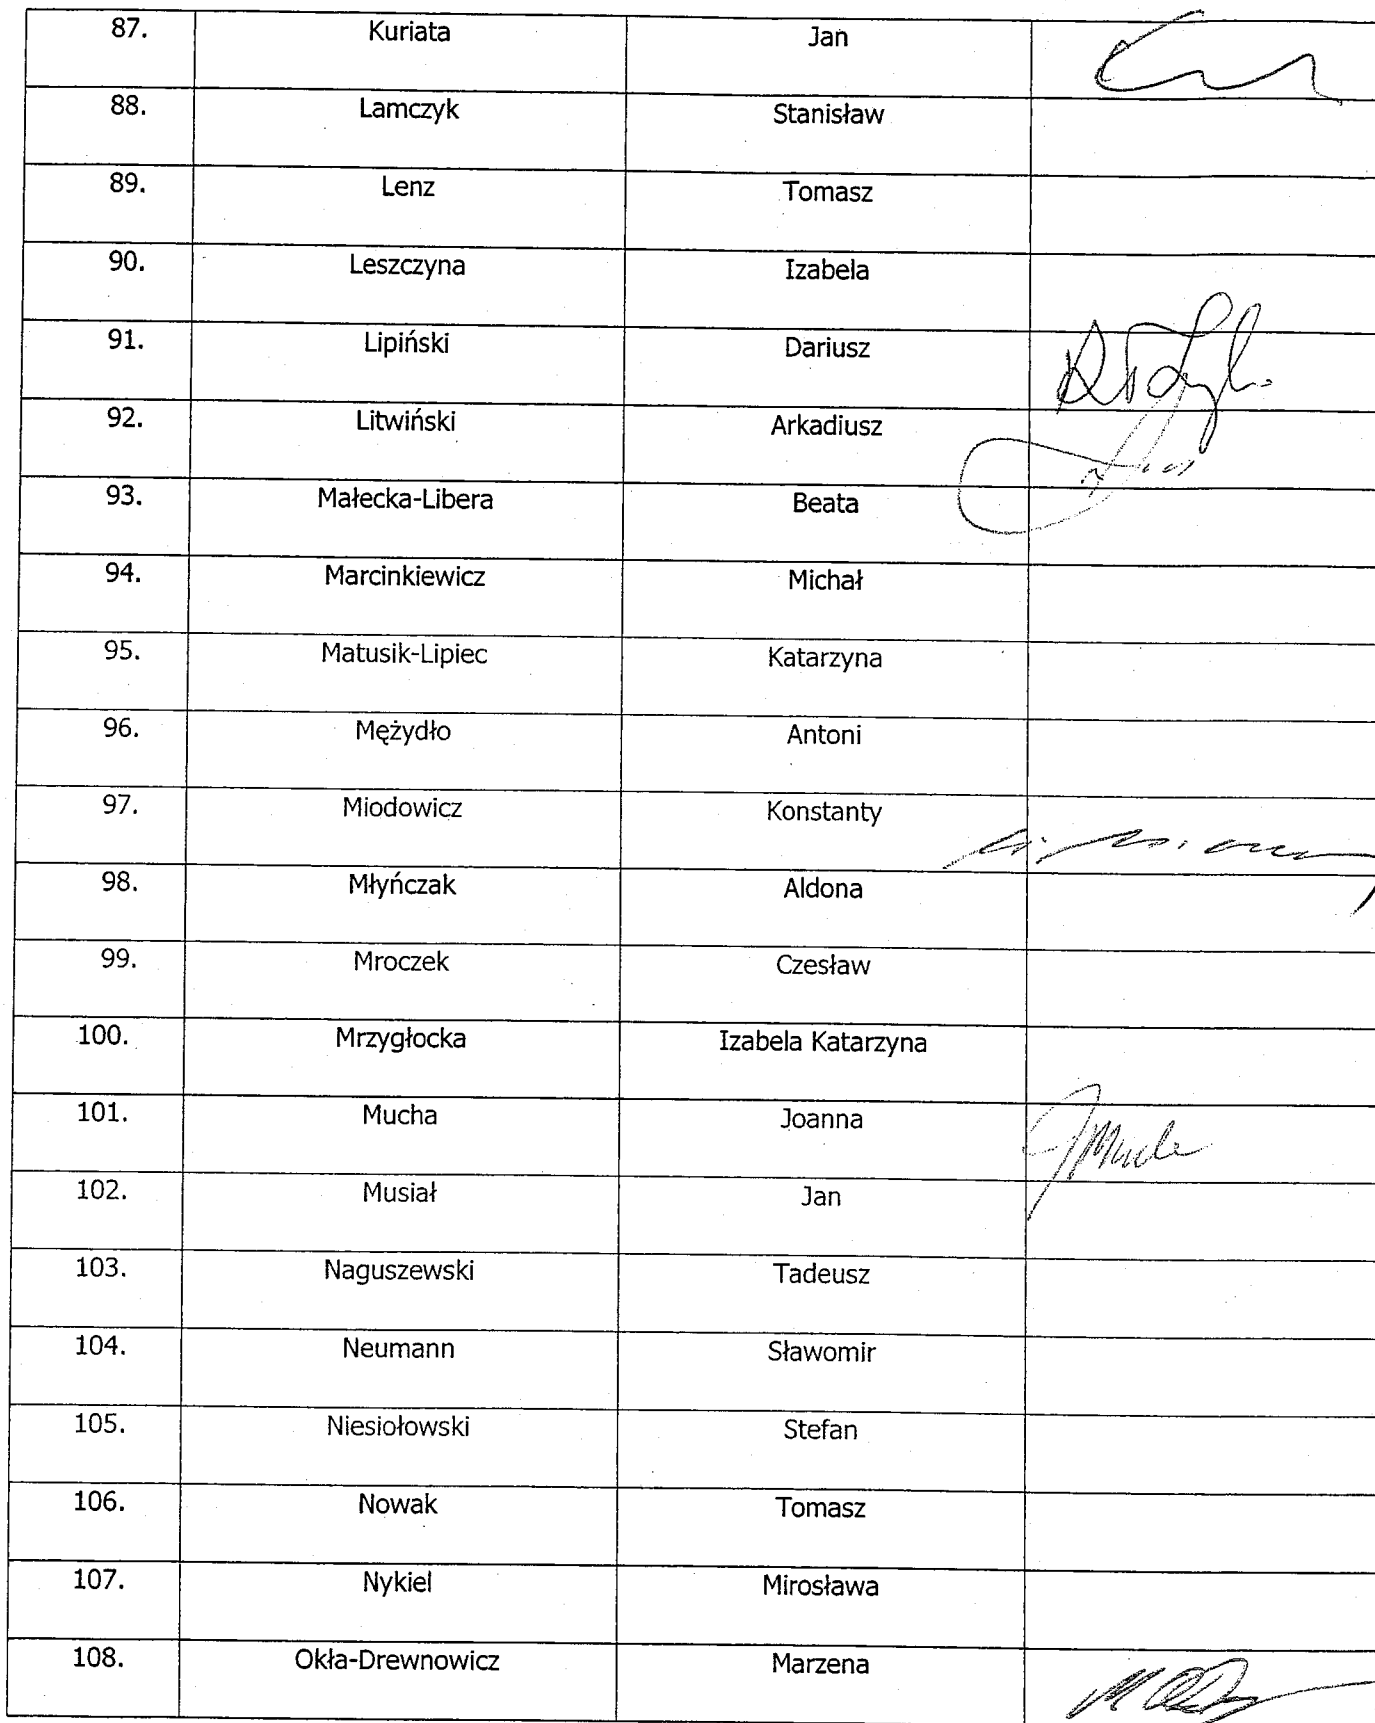 87. Kuriata Jan
88. Lamczyk Stanisław
89. Lenz Tomasz
90. Leszczyna Izabela
91. Lipiński Dariusz
92. Litwiński Arkadiusz
93. Małecka-Libera Beata
94. Marcinkiewicz Michał
95. Matusik-Lipiec Katarzyna
96. Mężydło Antoni
97. Miodowicz Konstanty
98. Młyńczak Aldona
99. Mroczek Czesław
100. Mrzygłocka Izabela Katarzyna
101. Mucha Joanna JMucha
102. Musiał Jan
103. Naguszewski Tadeusz
104. Neumann Sławomir
105. Niesiołowski Stefan
106. Nowak Tomasz
107. Nykiel Mirosława
108. Okła-Drewnowicz Marzena